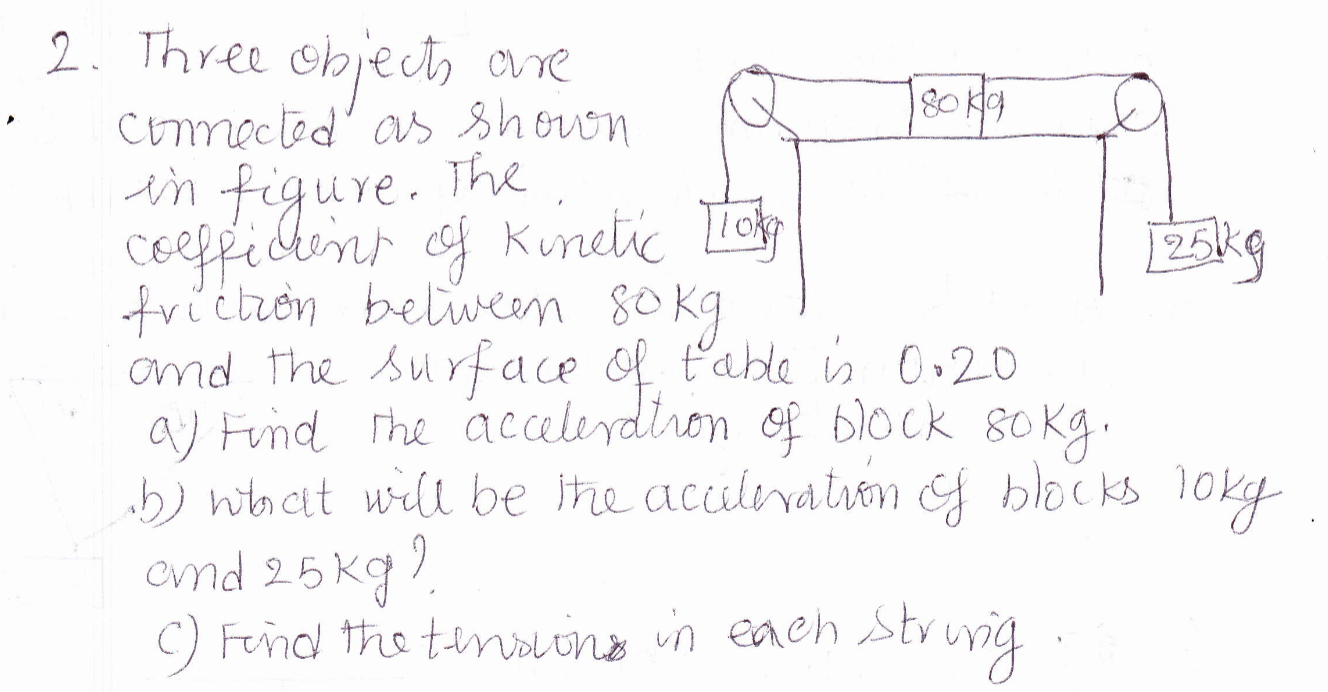 2. Three objects are
connected as shown
in figure. The
coefficient of kinetic
friction between 80 kg
and the surface of table is 0.20
a) Find the acceleration of block 80 kg.
b) what will be the acceleration of blocks 10 kg
and 25 kg?
c) Find the tensions in each string.
80 kg
10kg
25kg